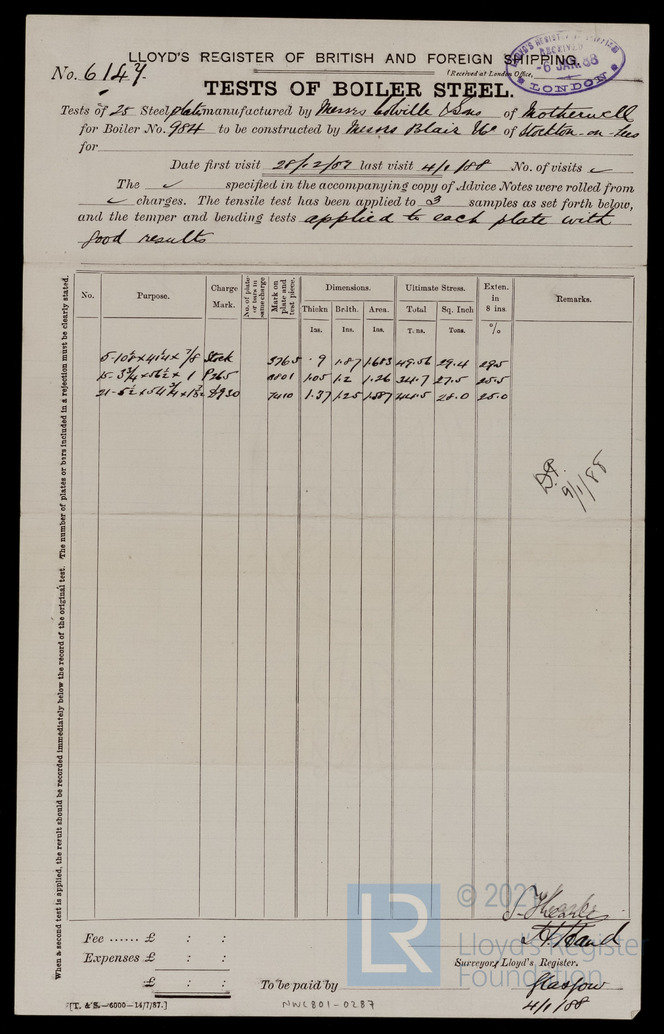 LLOYD'S REGISTER OF BRITISH AND FOREIGN SHIPPING.
No. 6147.
(Received at London Office,
RECEIVED
-6 JAN. 88
LONDON
TESTS OF BOILER STEEL.
Tests of 25 Steel plates manufactured by Messrs Colville & Sons of Motherwell
for Boiler No. 984 to be constructed by Messrs Blair & Co of Stockton-on-Tees
for
Date first visit 28/12/87 last visit 4/1/88 No. of visits ✓
The ✓ specified in the accompanying copy of Advice Notes were rolled from
✓ charges. The tensile test has been applied to 3 samples as set forth below,
and the temper and bending tests applied to each plate with
good results
When a second test is applied, the result should be recorded immediately below the record of the original test. The number of plates or bars included in a rejection must be clearly stated.
No. Purpose. Charge Mark. No. of plates or bars in same charge Mark on plate and test piece. Dimensions. Ultimate Stress. Exten. in 8 ins. Remarks.
Thickn Brdth. Area. Total Sq. Inch
Ins. Ins. Ins. Tons. Tons. %
7/8 Stock 3765 .9 1.87 1.683 49.56 29.4 29.5
1 P265 1.05 1.2 1.26 34.7 27.5 25.5
7410 1.37 1.25 44.5 28.0 25.0
9/1/88
© 202
LR
Lloyd's Register
Foundation
Fee ...... £ : :
Expenses £ : :
£ : :
Surveyors, Lloyd's Register.
To be paid by
Glasgow
4/1/88
[T. & S.—6000—14/7/87.]
NWC801-0287